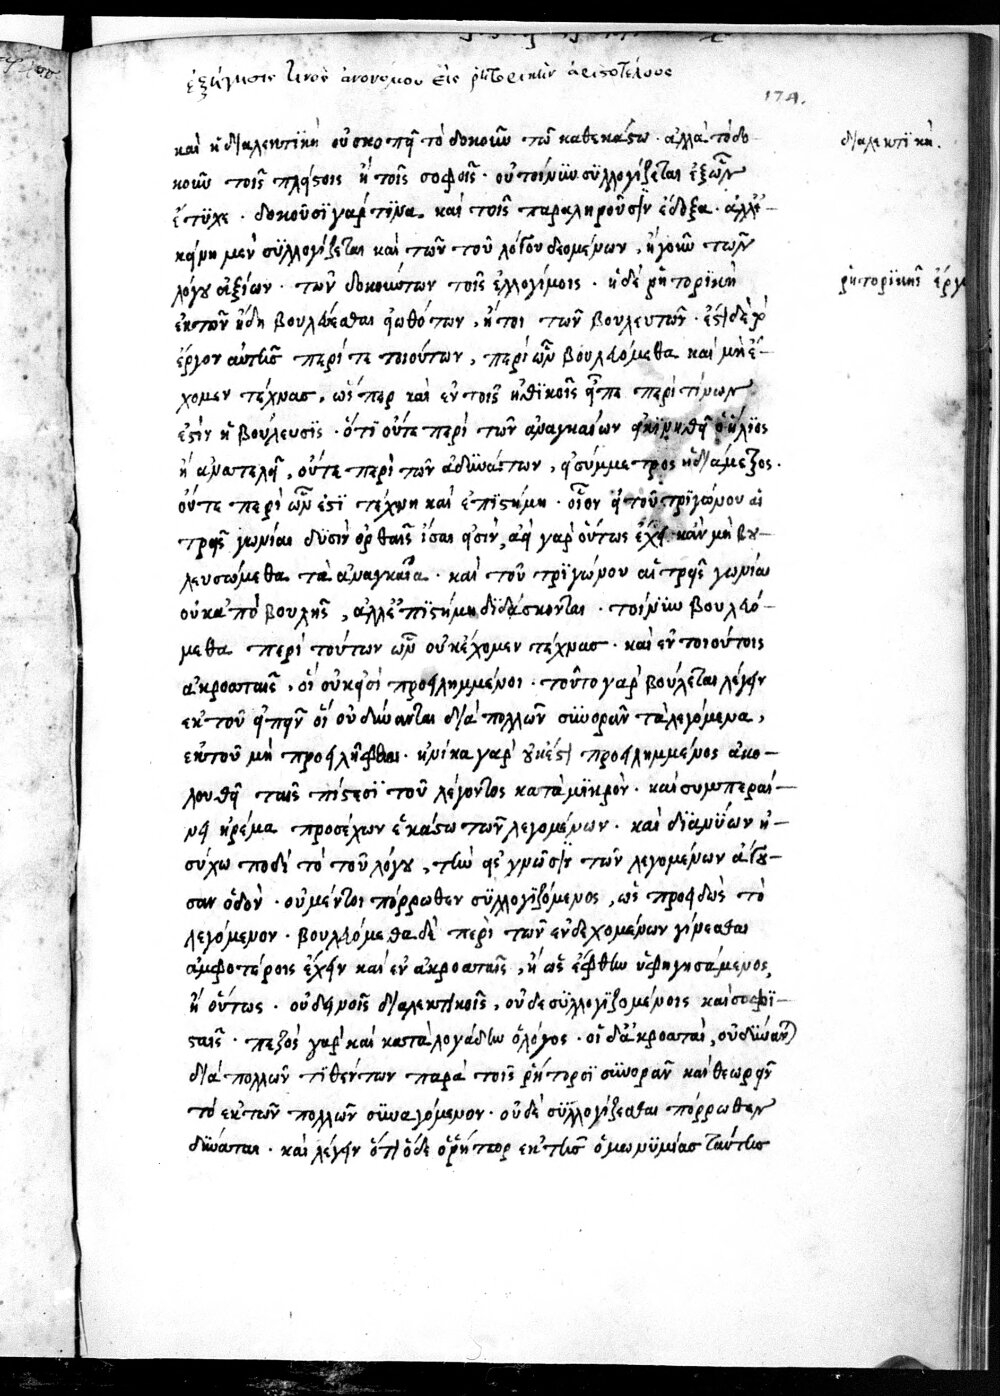 ἐξήγησις τινὸς ἀνονύμου εἰς ῥητορικὴν ἀριστοτέλους
174.
καὶ ἡ διαλεκτϊκὴ οὐ σκοπεῖ τὸ δοκοῦν τῶ καθεκάστω · ἀλλὰ τὸ δο
διαλεκτικὴ.
κοῦν τοῖς πλείστοις ἢ τοῖς σοφοῖς · οὐ τοίνυν συλλογίζεται ἐξ ὧν
ἔτϋχε · δοκοῦσϊ γάρ τϊνα καὶ τοῖς παραληροῦσιν ἔνδοξα · ἀλλ' ἐ-
κείνη μὲν συλλογίζεται καὶ τῶν τοῦ λόγου δεομένων, ἤγουν τῶν
λόγου ἀξίων · τῶν δοκούντων τοῖς ἐλλογίμοις · ἡ δὲ ῥητορϊκὴ
ῥητορϊκῆς ἔργ
ἐκ τῶν ἤδη βουλεύεσθαι εἰωθότων, ἤτοι τῶν βουλευτῶν · ἔστι δὲ τὸ
ἔργον αὐτῆς περί τε τοιούτων, περὶ ὧν βουλευόμεθα καὶ μὴ ἔ-
χομεν τέχνας, ὥσπερ καὶ ἐν τοῖς ἠθϊκοῖς εἶπε περὶ τίνων
ἐστὶν ἡ βούλευσϊς · ὅτϊ οὔτε περὶ τῶν ἀναγκαίων εἰ κϊνηθῆ ὁ ἥλϊος
ἢ ἀνατελεῖ, οὔτε περὶ τῶν ἀδϋνάτων, εἰ σύμμετρος ἡ διάμετρος ·
οὔτε περὶ ὧν ἐστϊ τέχνη καὶ ἐπϊστήμη · οἷον εἰ τοῦ τριγώνου αἱ
τρεῖς γωνίαι δυσὶν ὀρθαῖς ἴσαι εἰσὶν, ἀεὶ γὰρ οὕτως ἔχει κἂν μὴ βου-
λευσώμεθα τὰ ἀναγκαῖα · καὶ τοῦ τρϊγώνου αἱ τρεῖς γωνίαι
οὐκ ἀπὸ βουλῆς, ἀλλ' ἐπϊστήμη διδάσκονται · τοίνυν βουλευό-
μεθα περὶ τούτων ὧν οὐκ ἔχομεν τέχνας · καὶ ἐν τοιούτοις
ἀκροαταῖς, οἳ οὐκ εἰσὶ προειλημμένοι · τοῦτο γὰρ βούλεται λέγειν
ἐκ τοῦ εἰπεῖν οἳ οὐ δύνανται διὰ πολλῶν συνορᾶν τὰ λεγόμενα,
ἐκ τοῦ μὴ προειλῆφθαι · ἡνίκα γὰρ οὐκ ἔστι προειλημμένος ἀκο-
λουθεῖ ταῖς πίστεσϊ τοῦ λέγοντος κατὰ μϊκρὸν · καὶ συμπεραί-
νει ἠρέμα προσέχων ἑκάστω τῶν λεγομένων · καὶ διανύων ἡ-
σύχω ποδὶ τὸ τοῦ λόγου, τὴν εἰς γνῶσϊν τῶν λεγομένων ἄγου-
σαν ὁδὸν · οὐ μέντοι πόρρωθεν συλλογϊζόμενος, ὡς προειδὼς τὸ
λεγόμενον · βουλευόμεθα δὲ περὶ τῶν ἐνδεχομένων γίνεσθαι
ἀμφοτέροις ἔχειν καὶ ἐν ἀκροαταῖς, ἢ ὡς ἔφθην ὑφηγησάμενος,
ἢ οὕτως · οὐ δεινοῖς διαλεκτικοῖς, οὐδὲ συλλογϊζομένοις καὶ σοφϊ-
σταῖς · πεζὸς γὰρ καὶ καταλογάδην ὁ λόγος · οἱ δ' ἀκροαταὶ, οὐ δύνανται
διὰ πολλῶν τϊθέντων παρὰ τοῖς ῥήτορσϊ συνορᾶν καὶ θεωρεῖν
τὸ ἐκ τῶν πολλῶν συναγόμενον · οὐδὲ συλλογίζεσθαι πόρρωθεν
δύναται · καὶ λέγειν ὅτι ὅδε ὁ ῥήτωρ ἐκ τῆς ὁμωνϋμίας ταύτης